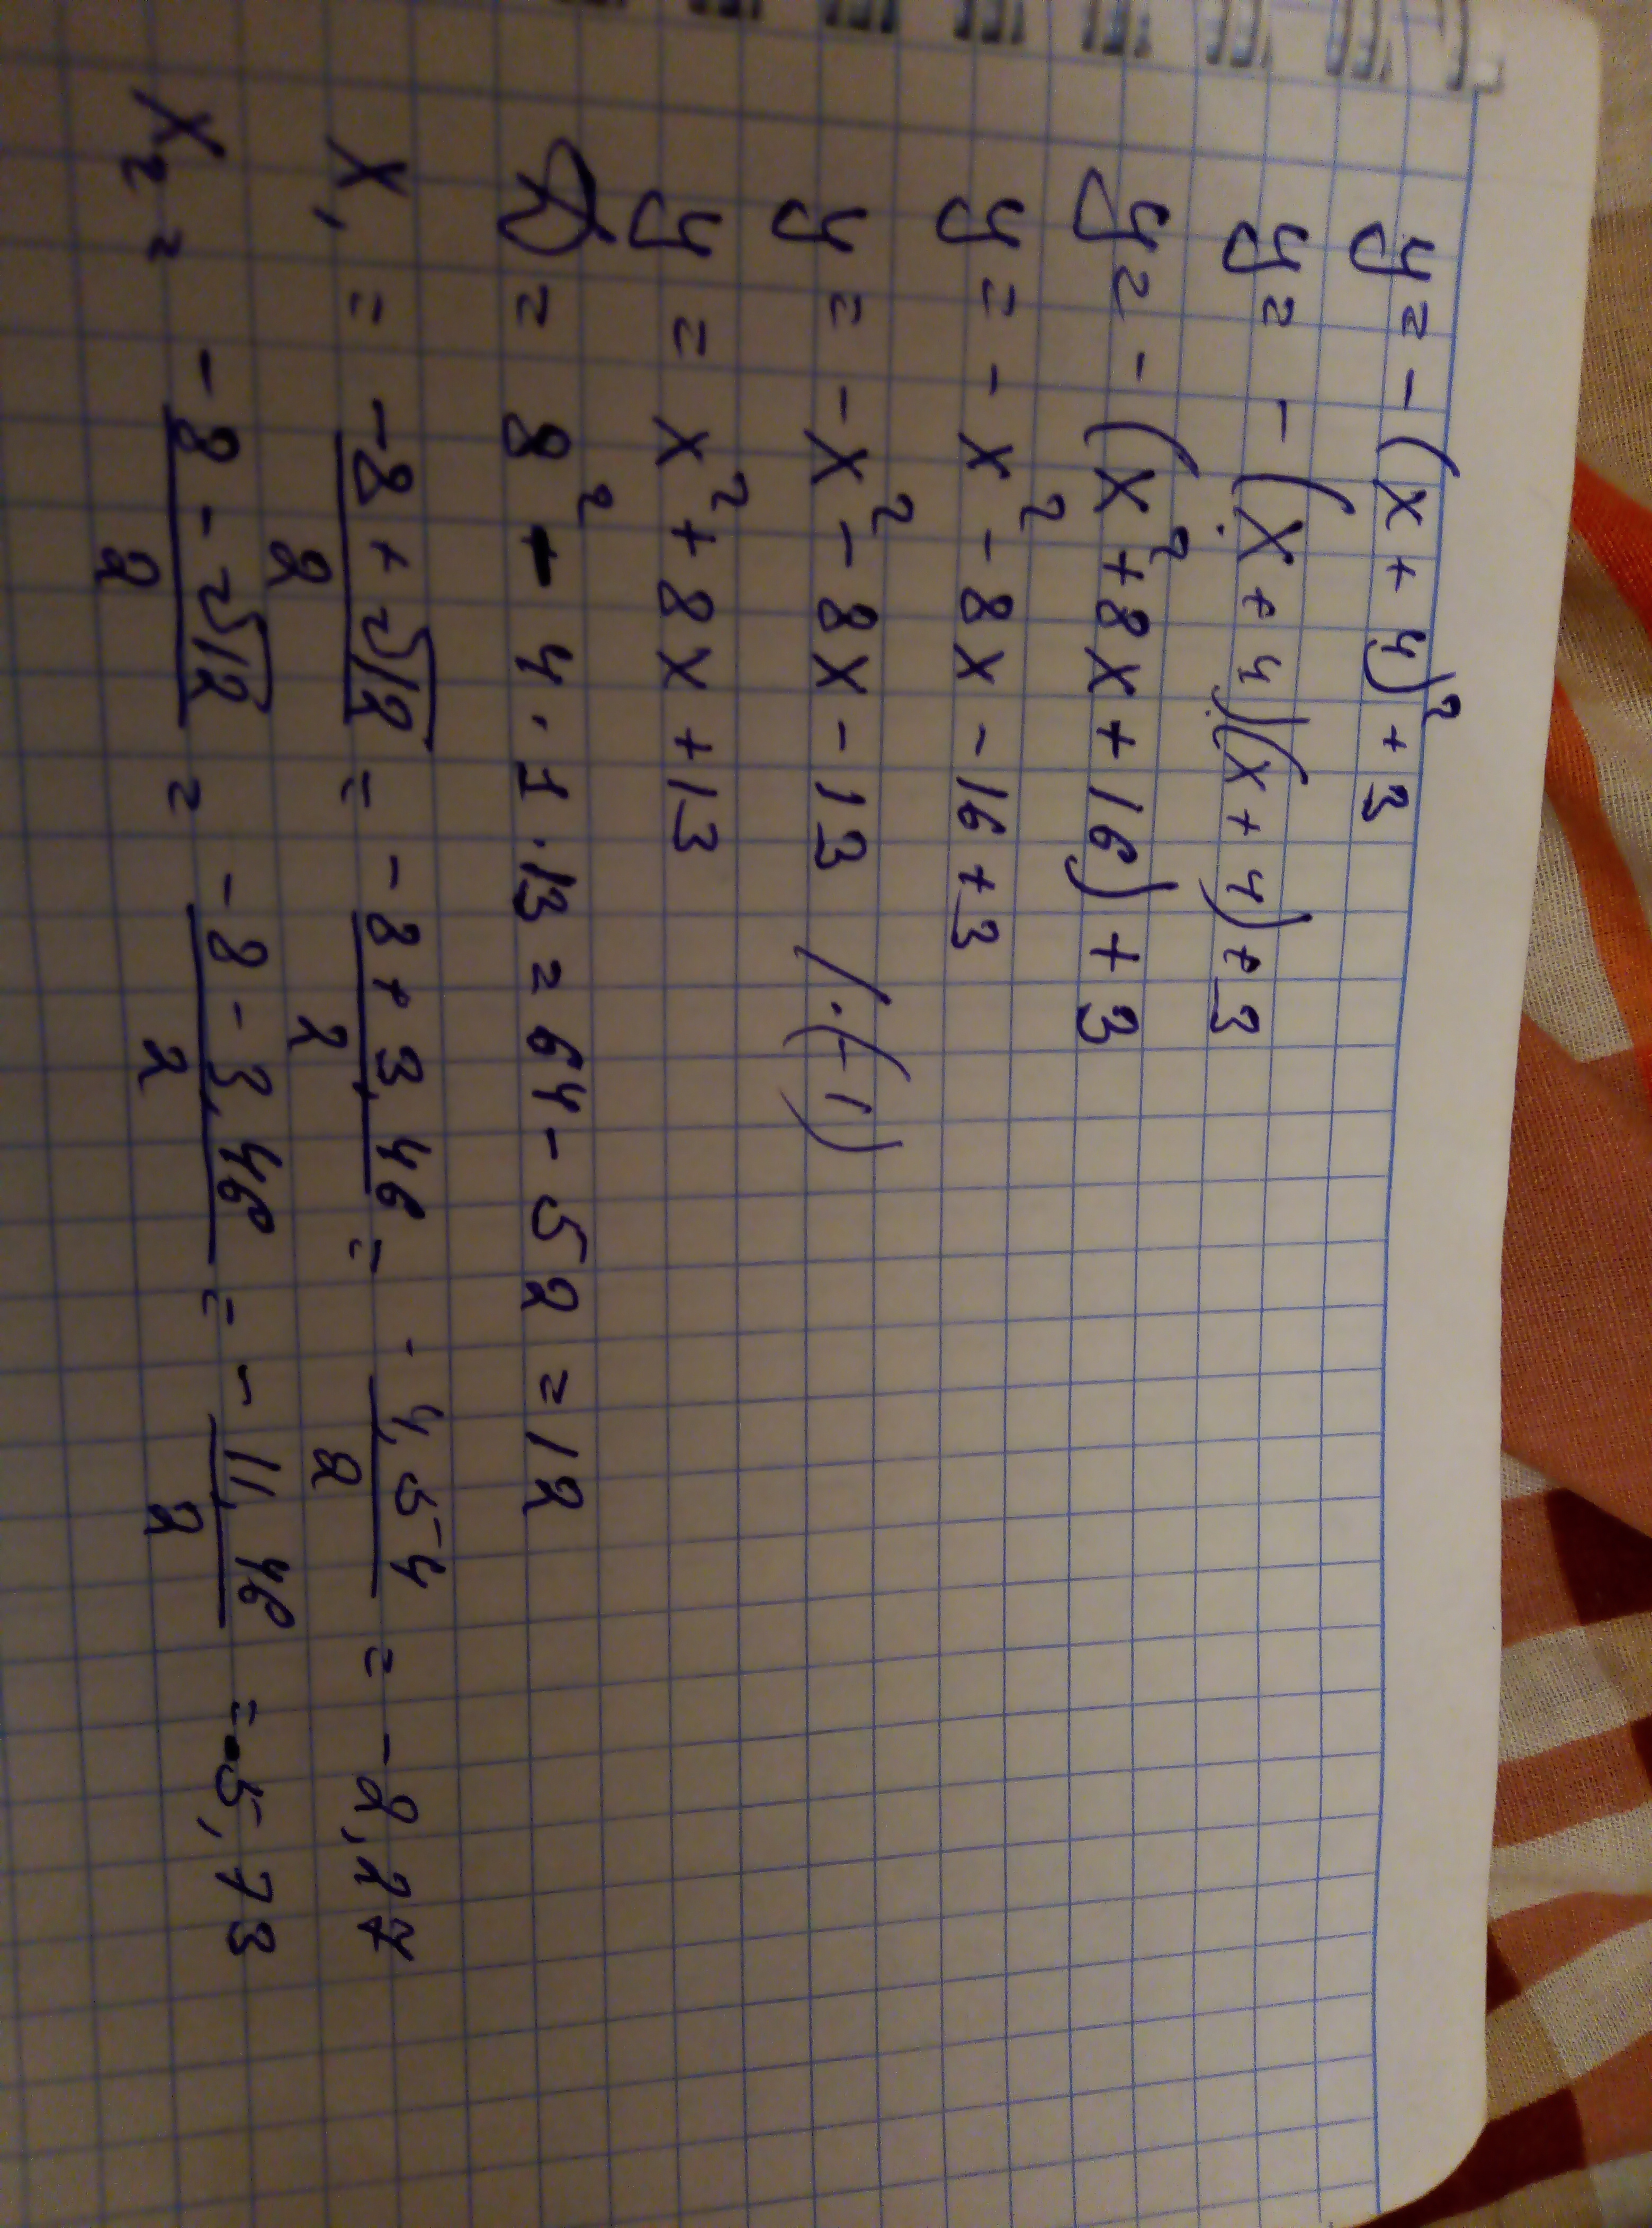 y = -(x + 4)² + 3
y = -(x + 4)(x + 4) + 3
y = -(x² + 8x + 16) + 3
y = -x² - 8x - 16 + 3
y = -x² - 8x - 13 /·(-1)
y = x² + 8x + 13
= 8² - 4 · 1 · 13 = 64 - 52 = 12
x₁ = (-8 + √12)/2 = (-8 + 3,46)/2 = -4,54/2 = -2,27
x₂ = (-8 - √12)/2 = (-8 - 3,46)/2 = -11,46/2 = -5,73